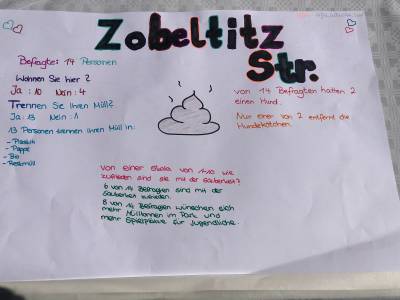 Zobeltitz
Str.
Befragte: 14 Personen
Wohnen Sie hier?
Ja: 10 Nein: 4
Trennen Sie Ihren Müll?
Ja: 13 Nein: 1
13 Personen trennen Ihren Müll in:
- Plastik
- Pappe
- Bio
- Restmüll
von 14 Befragten hatten 2
einen Hund.
Nur einer von 2 entfernt die
Hundekötchen.
Von einer Skala von 1-10 wie
zufrieden sind sie mit der Sauberkeit?
6 von 14 Befragten sind mit der
Sauberkeit zufrieden.
8 von 14 Befragten wünschen sich
mehr Mülltonnen im Park und
mehr Spielplätze für Jugendliche.